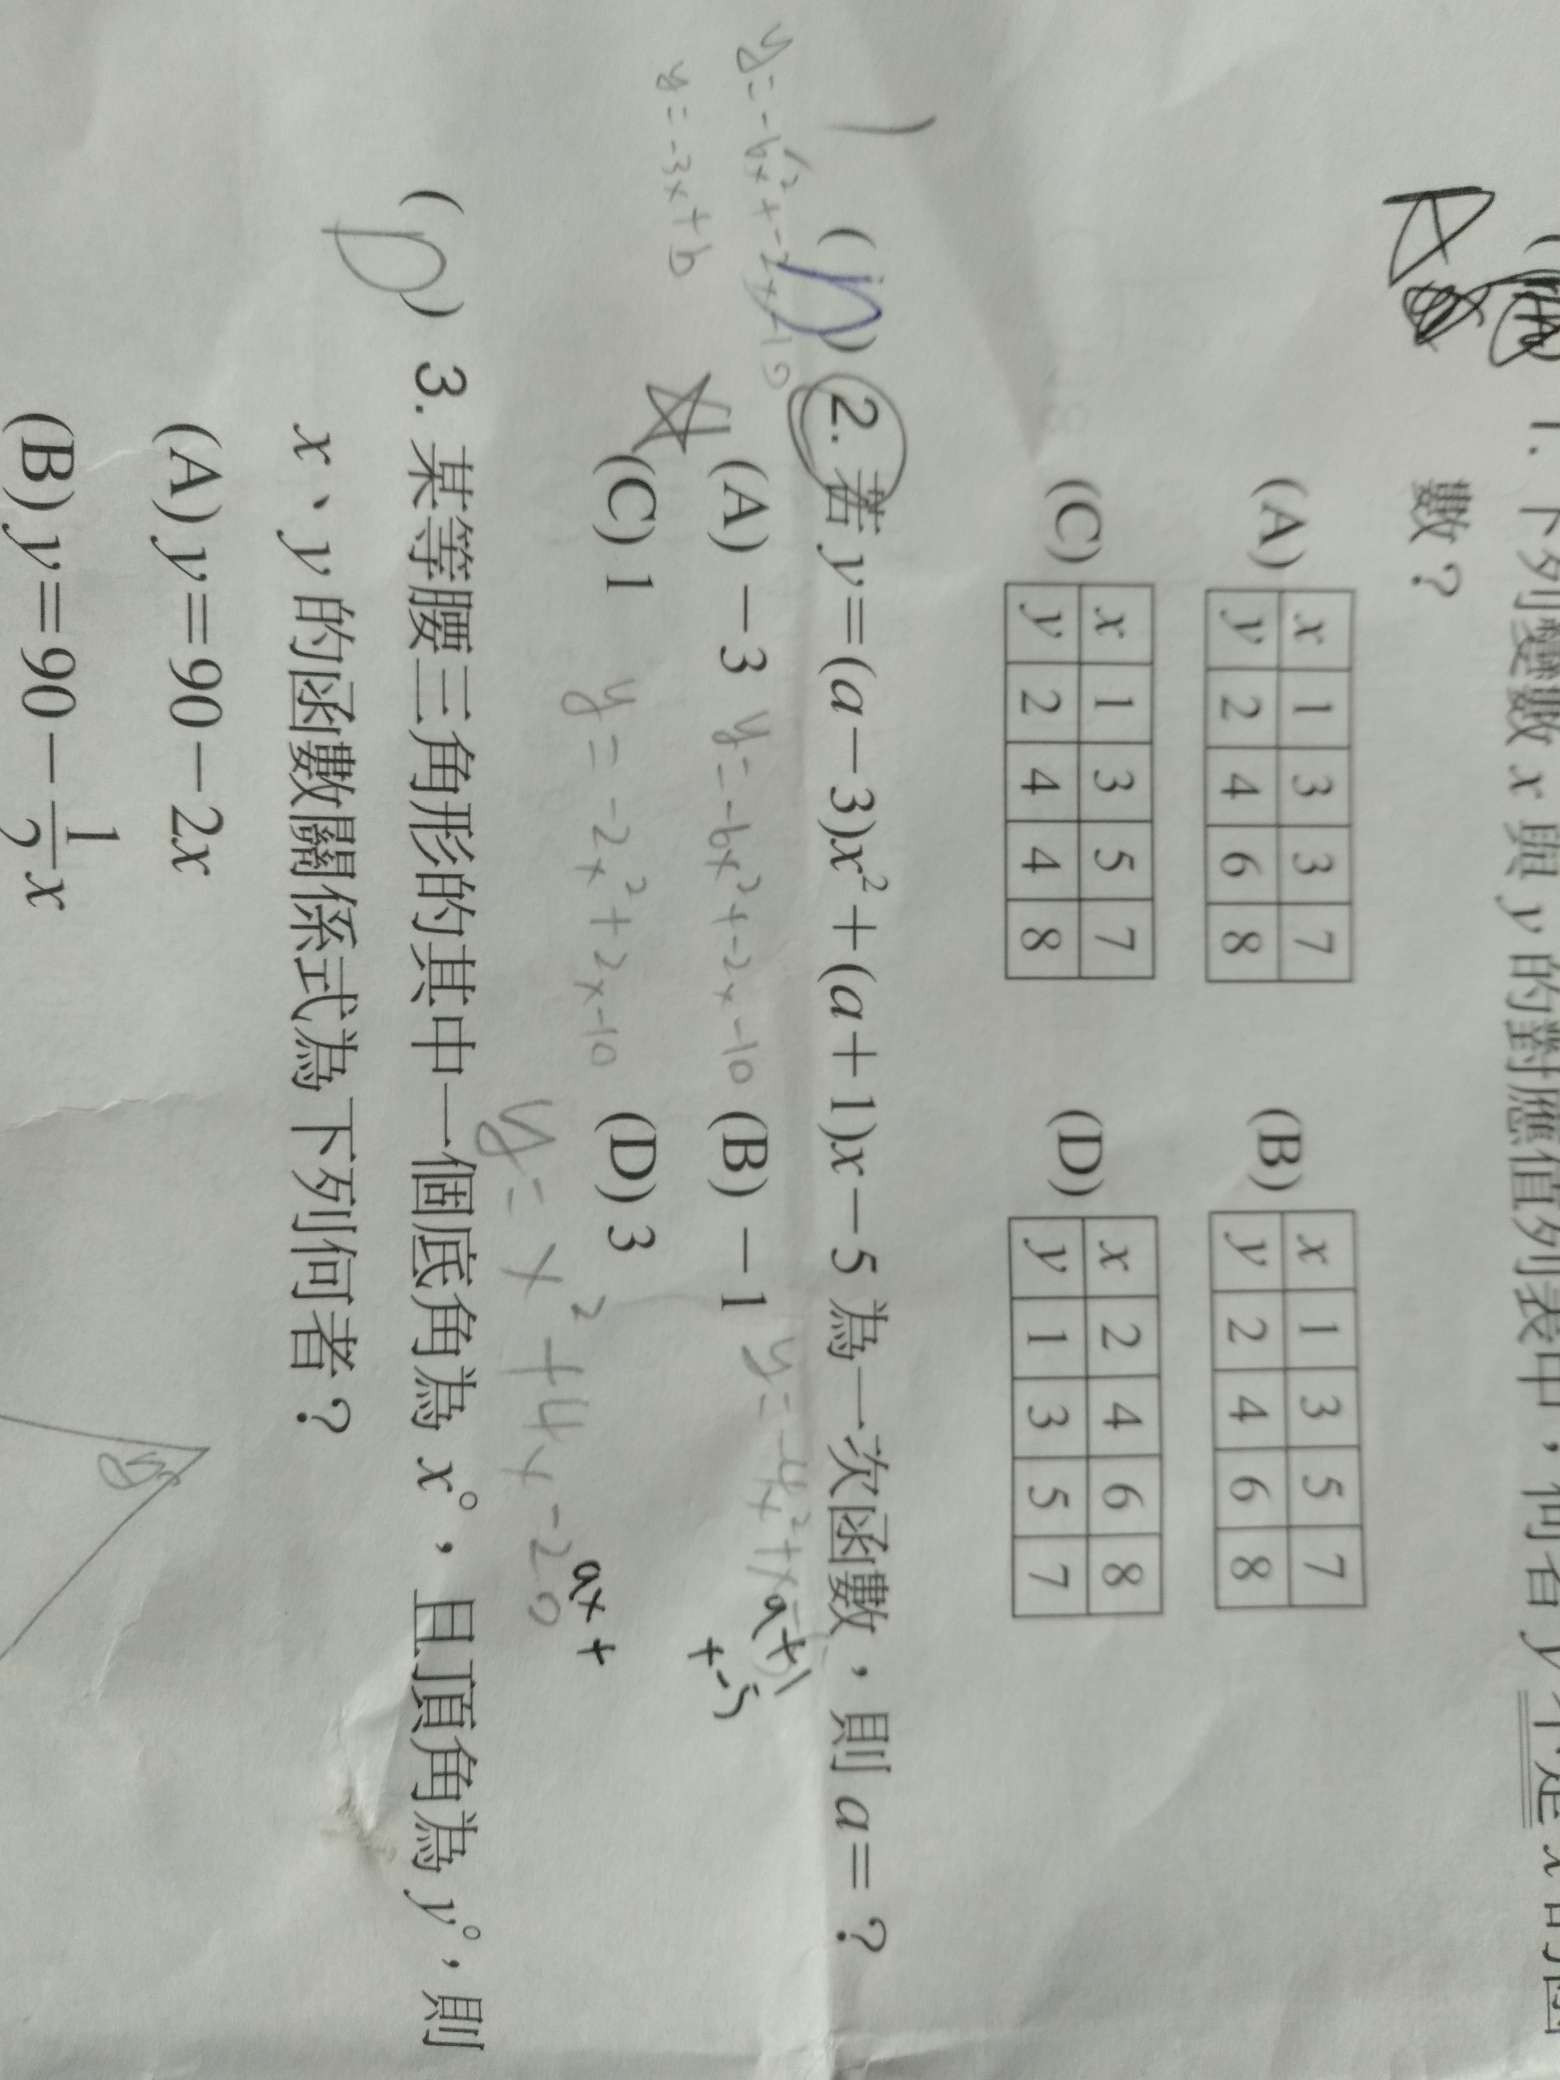 1. 下列變數 x 與 y 的對應值列表中,何者 y 不是 x 的函
數?
(A) x 1 3 3 7
y 2 4 6 8
(B) x 1 3 5 7
y 2 4 6 8
(C) x 1 3 5 7
y 2 4 4 8
(D) x 2 4 6 8
y 1 3 5 7
(D) 2. 若 y=(a-3)x²+(a+1)x-5 為一次函數,則 a=?
y=-6x²+-2x-10
y=-3x+b
(A) -3 y=-6x²+-2x-10 (B) -1 y=-4x²+x
a+1
+-5
(C) 1 y=-2x²+2x-10 (D) 3
ax+
y=x²+4x-20
(D) 3. 某等腰三角形的其中一個底角為 x°,且頂角為 y°,則
x、y 的函數關係式為下列何者?
(A) y=90-2x
(B) y=90-1/2x
y